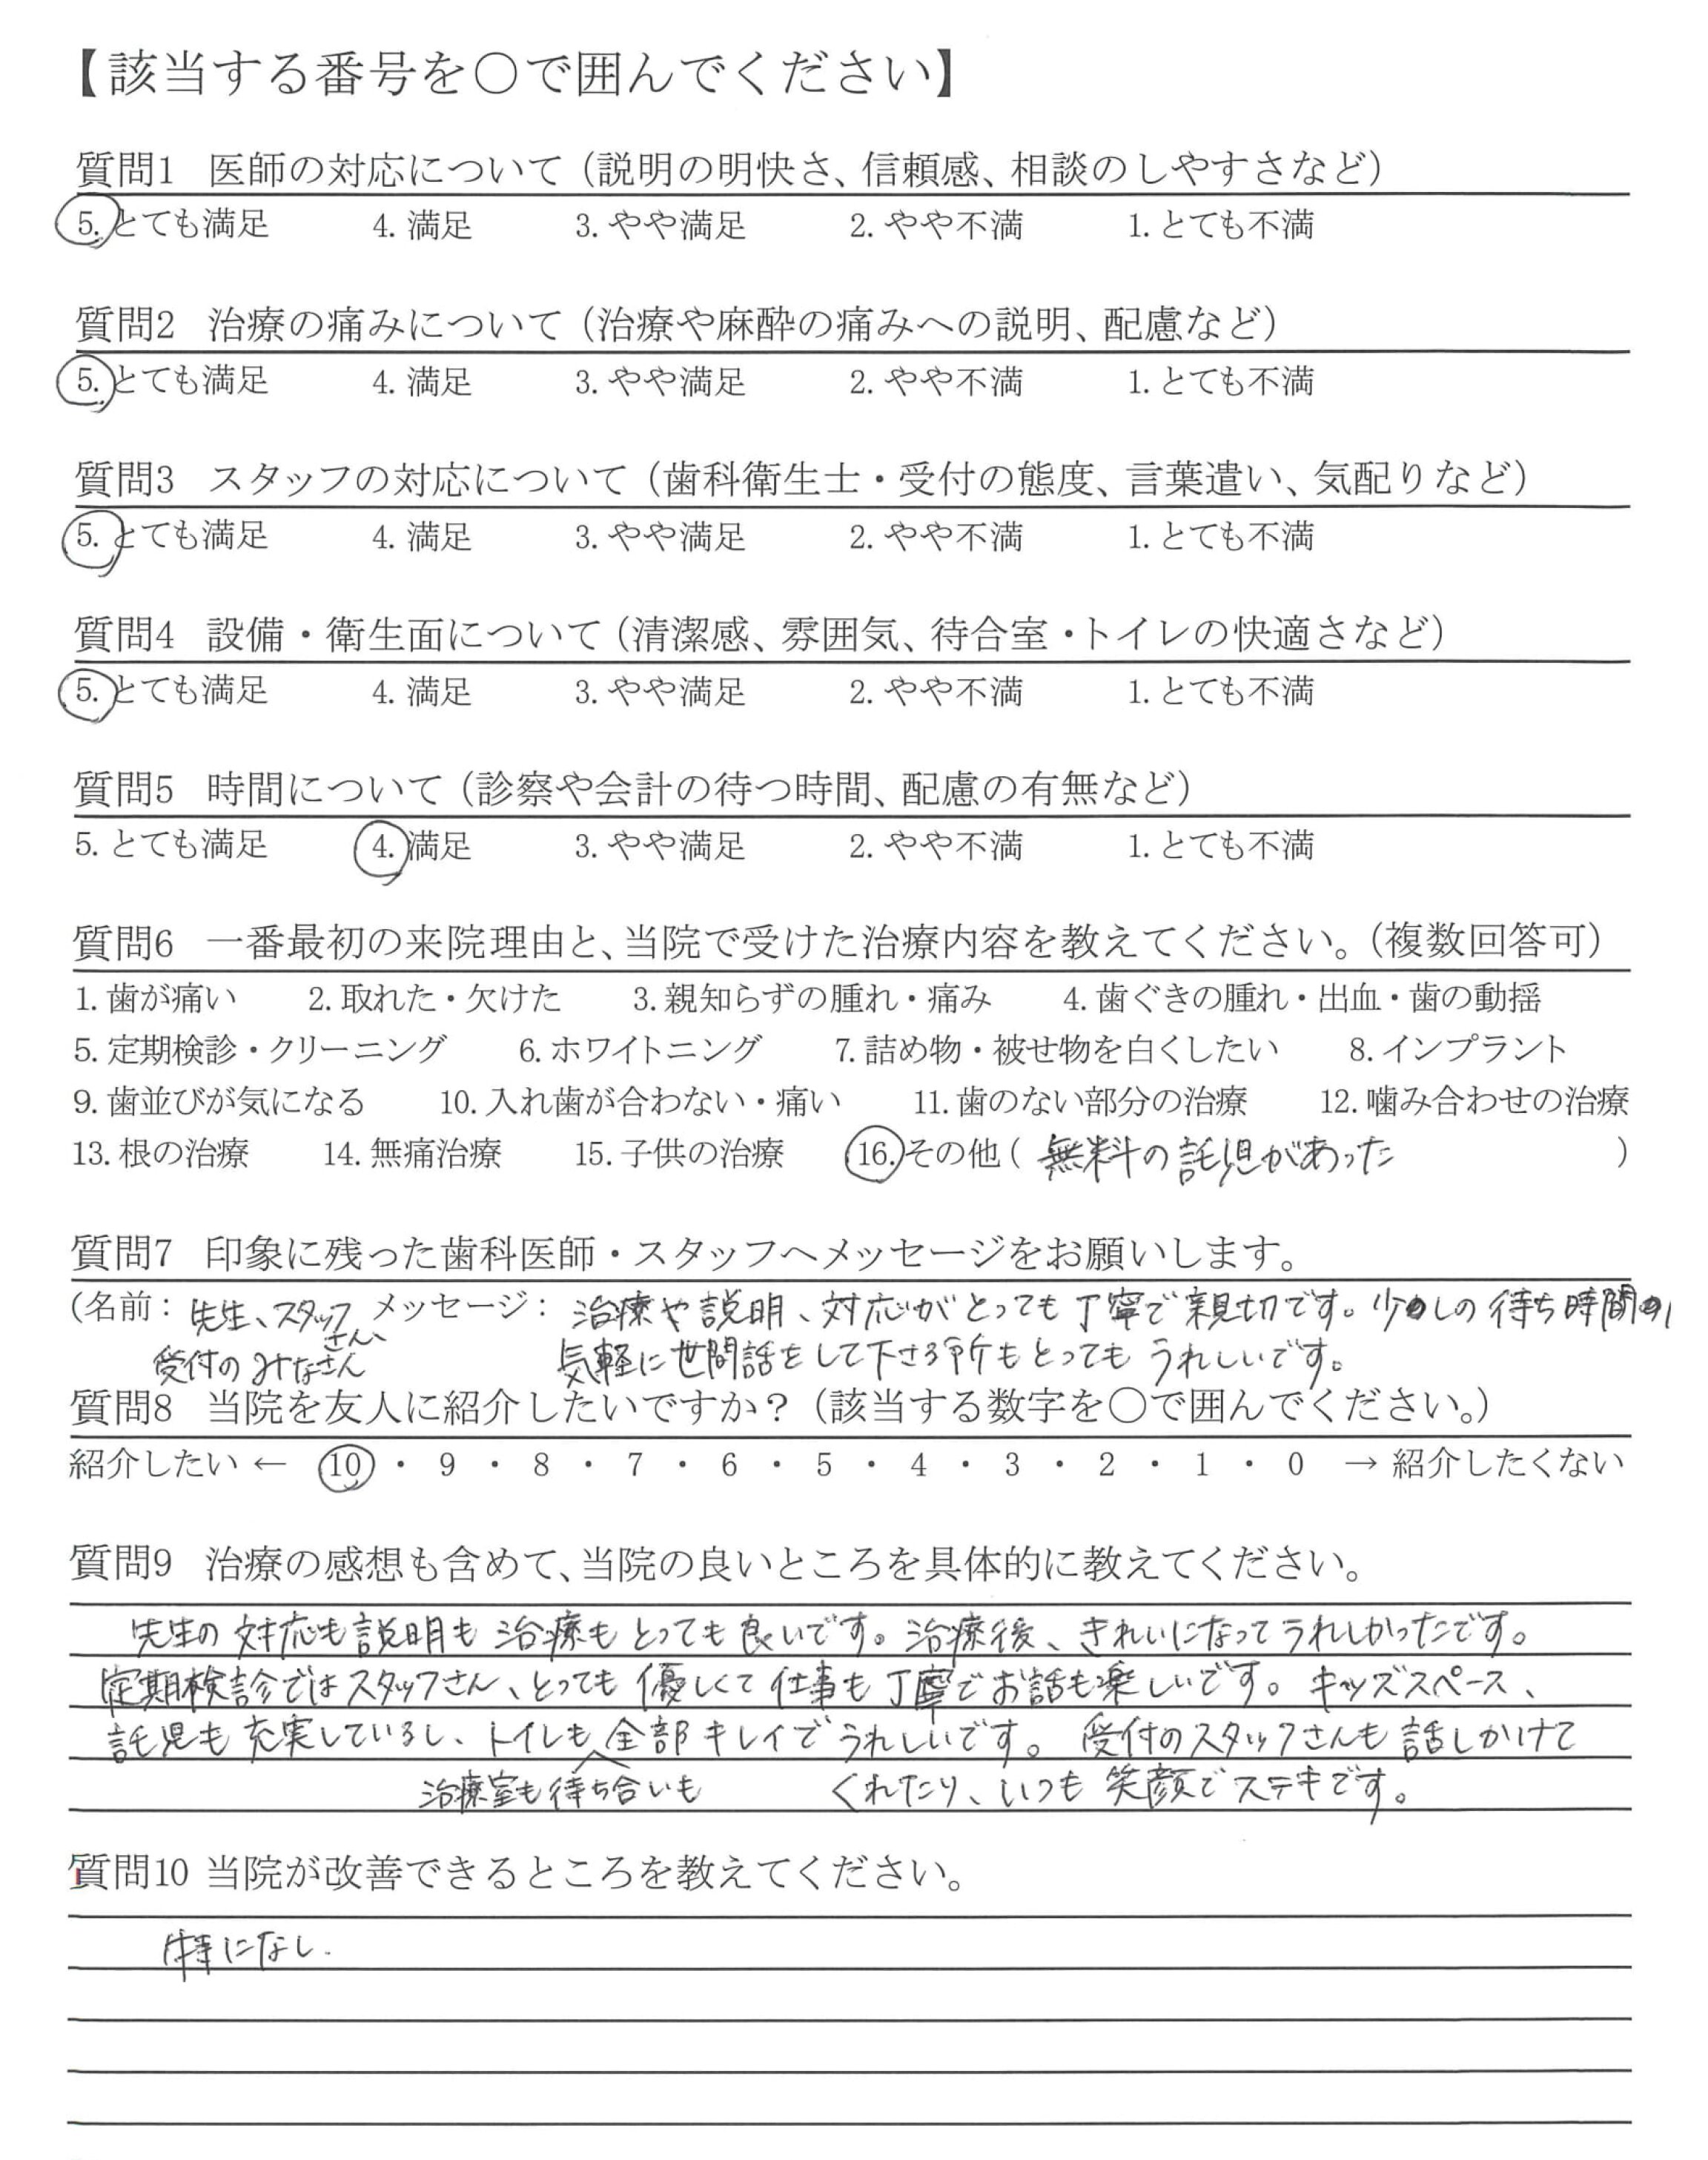 【該当する番号を〇で囲んでください】
質問1 医師の対応について（説明の明快さ、信頼感、相談のしやすさなど）
5. とても満足 4. 満足 3. やや満足 2. やや不満 1. とても不満
質問2 治療の痛みについて（治療や麻酔の痛みへの説明、配慮など）
5. とても満足 4. 満足 3. やや満足 2. やや不満 1. とても不満
質問3 スタッフの対応について（歯科衛生士・受付の態度、言葉遣い、気配りなど）
5. とても満足 4. 満足 3. やや満足 2. やや不満 1. とても不満
質問4 設備・衛生面について（清潔感、雰囲気、待合室・トイレの快適さなど）
5. とても満足 4. 満足 3. やや満足 2. やや不満 1. とても不満
質問5 時間について（診察や会計の待つ時間、配慮の有無など）
5. とても満足 4. 満足 3. やや満足 2. やや不満 1. とても不満
質問6 一番最初の来院理由と、当院で受けた治療内容を教えてください。（複数回答可）
1. 歯が痛い 2. 取れた・欠けた 3. 親知らずの腫れ・痛み 4. 歯ぐきの腫れ・出血・歯の動揺
5. 定期検診・クリーニング 6. ホワイトニング 7. 詰め物・被せ物を白くしたい 8. インプラント
9. 歯並びが気になる 10. 入れ歯が合わない・痛い 11. 歯のない部分の治療 12. 噛み合わせの治療
13. 根の治療 14. 無痛治療 15. 子供の治療 16. その他（ 無料の託児があった ）
質問7 印象に残った歯科医師・スタッフへメッセージをお願いします。
（名前： 先生、スタッフさん、 メッセージ： 治療や説明、対応がとっても丁寧で親切です。少しの待ち時間の
受付のみなさん 気軽に世間話をして下さる所もとってもうれしいです。
質問8 当院を友人に紹介したいですか？（該当する数字を〇で囲んでください。）
紹介したい ← 10 ・ 9 ・ 8 ・ 7 ・ 6 ・ 5 ・ 4 ・ 3 ・ 2 ・ 1 ・ 0 → 紹介したくない
質問9 治療の感想も含めて、当院の良いところを具体的に教えてください。
先生の対応も説明も治療もとっても良いです。治療後、きれいになってうれしかったです。
定期検診ではスタッフさん、とっても優しくて仕事も丁寧でお話も楽しいです。キッズスペース、
託児も充実しているし、トイレも全部キレイでうれしいです。受付のスタッフさんも話しかけて
治療室も待ち合いも くれたり、いつも笑顔でステキです。
質問10 当院が改善できるところを教えてください。
特になし.